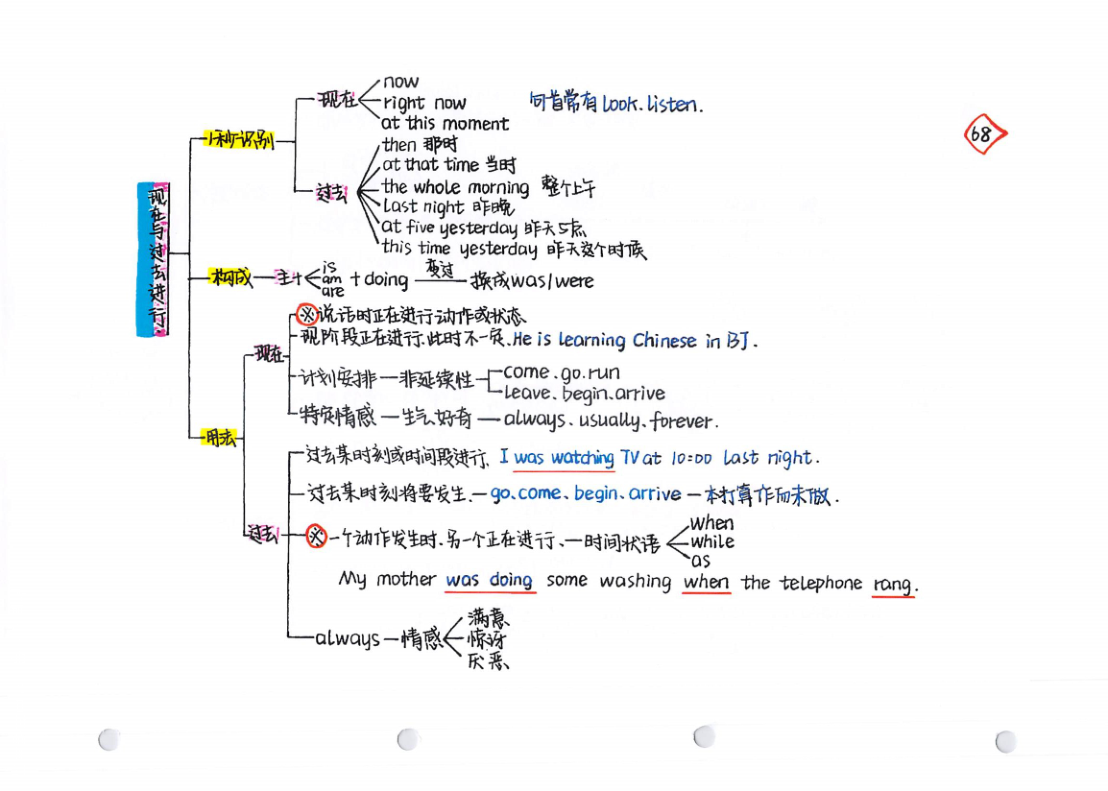 now
现在
right now
句首常有Look、Listen.
at this moment
68
1秒识别
then 那时
at that time 当时
过去
the whole morning 整个上午
Last night 昨晚
at five yesterday 昨天5点
this time yesterday 昨天这个时候
现在与过去进行
构成
主+
is
am
are
+doing
变过
换成was/were
※说话时正在进行动作或状态
现在
现阶段正在进行、此时不一定、He is learning Chinese in BJ.
计划安排—非延续性
come、go、run
leave、begin、arrive
特定情感—生气、好奇—always、usually、forever.
用法
过去某时刻或时间段进行、I was watching TV at 10:00 Last night.
过去某时刻将要发生、—go、come、begin、arrive—本打算作而未做.
过去
※一个动作发生时、另一个正在进行、—时间状语
when
while
as
My mother was doing some washing when the telephone rang.
always—情感
满意
惊讶
厌恶